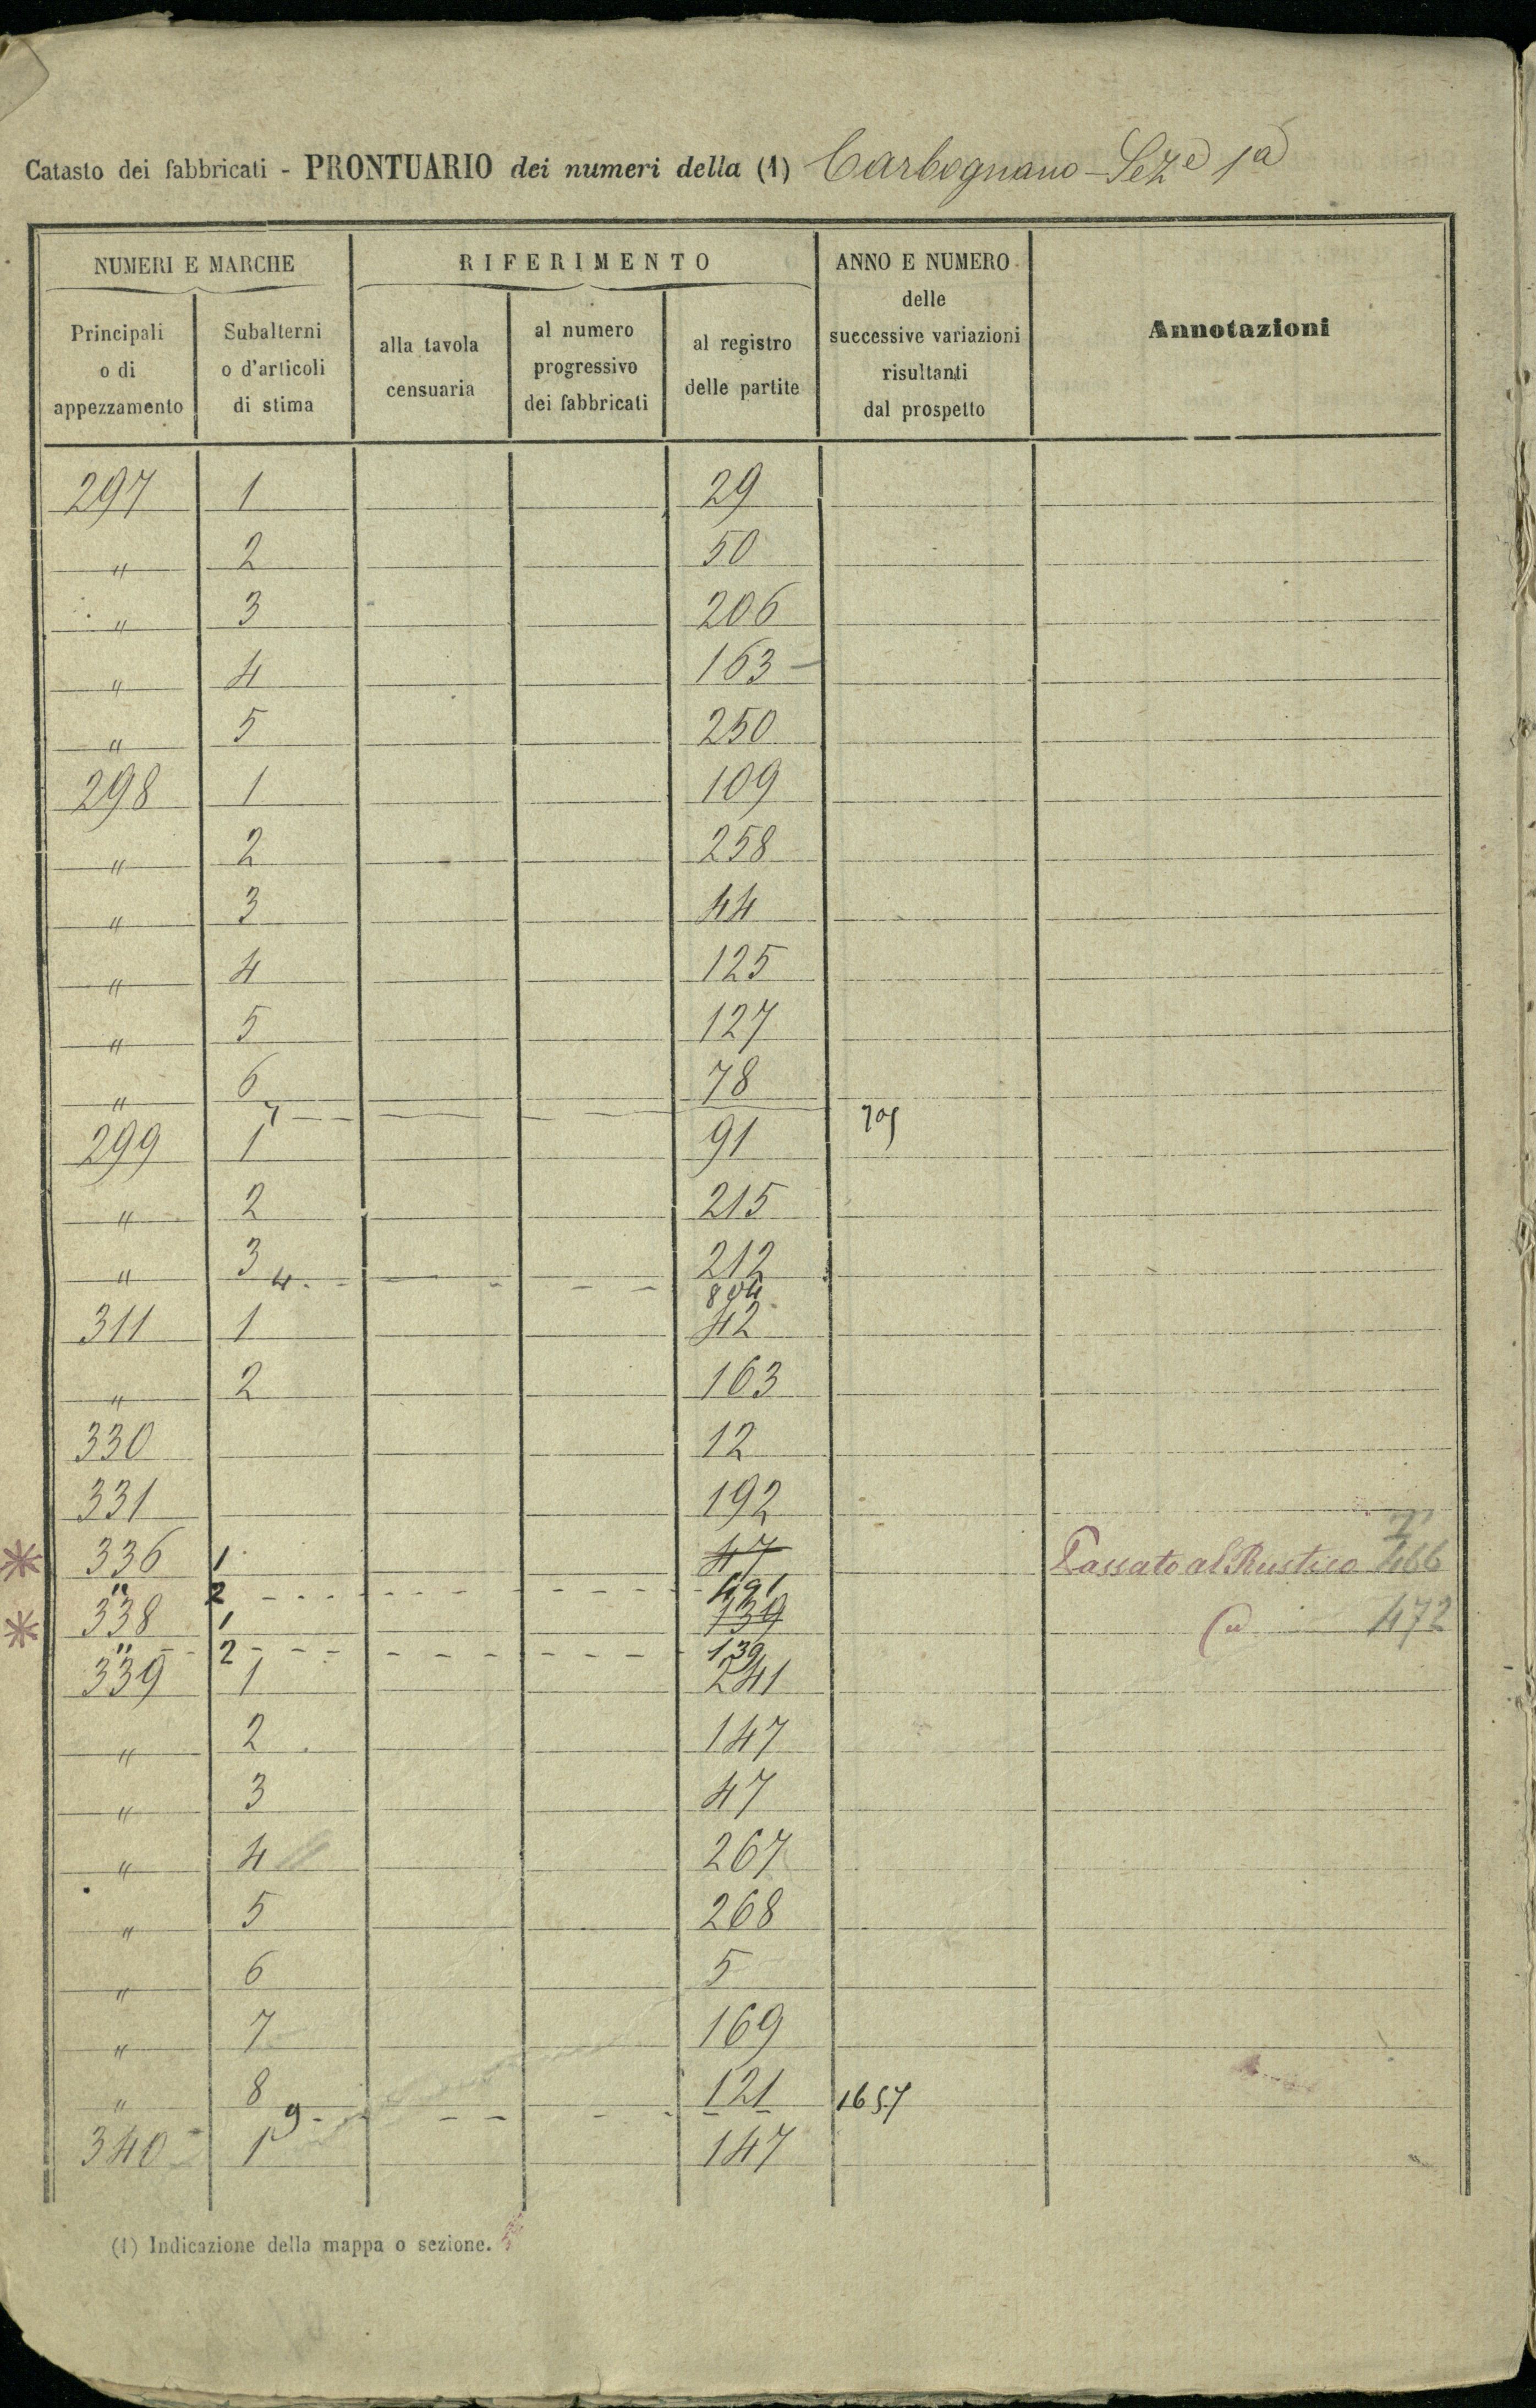 Catasto dei fabbricati - PRONTUARIO dei numeri della (1) Carbognano - Sez.e 1a
NUMERI E MARCHE
RIFERIMENTO
ANNO E NUMERO
delle
successive variazioni
risultanti
dal prospetto
Annotazioni
Principali
o di
appezzamento
Subalterni
o d'articoli
di stima
alla tavola
censuaria
al numero
progressivo
dei fabbricati
al registro
delle partite
297 1 29
" 2 50
" 3 206
" 4 163 -
" 5 250
298 1 109
" 2 258
" 3 44
" 4 125
" 5 127
" 6 78
7 - -
299 1 91
" 2 215
" 3 212
4
311 1 42
" 2 163
330 12
331 192
* 336 1 47 Passato al Rustico 466
" 2 491
* 338 1 139 472
" 2 139
339 1 241
" 2 147
" 3 47
" 4 267
" 5 268
" 6 5
" 7 169
" 8 121 1657
9
340 1 147
(1) Indicazione della mappa o sezione.